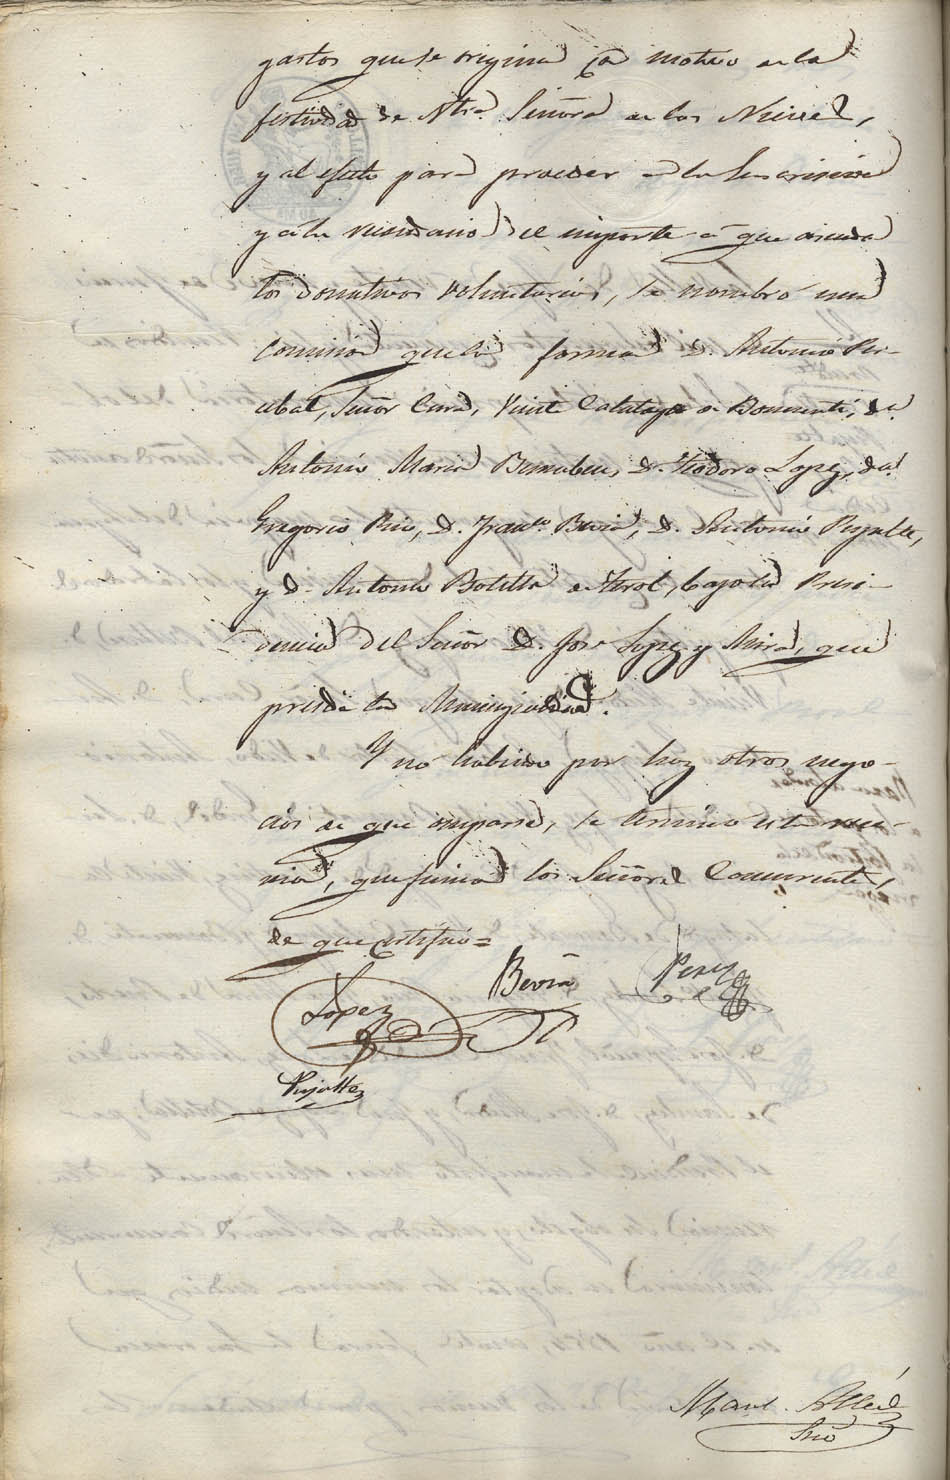 gastos que se originan con motivo de la
festividad de Ntra. Señora de las Nieves,
y al efecto para proceder a la Suscricion
y a la recaudacion del importe a que ascienda
los donativos voluntarios, se nombró una
Comision que la forman D. Antonio Per-
cebal, Señor Cura, Vicente Calatayu de Bonmati, D.
Antonio Maria Bernabeu, D. Teodoro Lopez, D.
Gregorio Rico, D. Franco. Bevia, D. Antonio Pujalte,
y D. Antonio Botella de Ferol, bajo la Presi-
dencia del Señor D. Jose Lopez y Mira, que
preside la Municipalidad.
Y no habiendo por hoy otros nego-
cios de que ocuparse, se terminó esta reu-
nion, que firman los Señores Concurrentes,
de que certifico=
Lopez Bevia Perez
Pujalte
Manl.
Srio